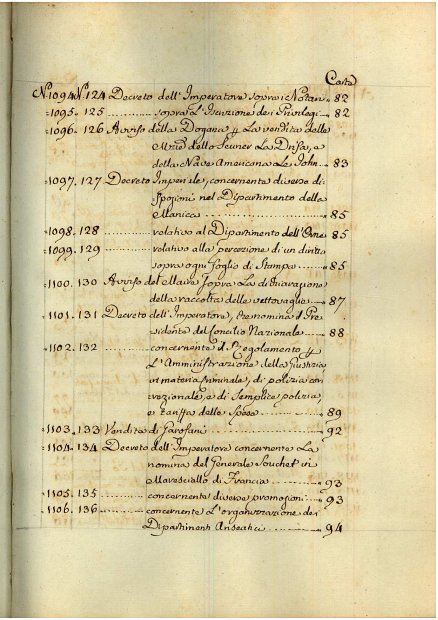 Carta
Nº 1094. Nº 124 Decreto dell'Imperatore sopra i Notari " 82
" 1095. " 125 ............ sopra L'Iscrizione dei Privilegi " 82
" 1096. " 126 Avviso della Dogana p La vendita delle
Mrzie dello Scuner La Drisa, e
della Nave Americana Le John ... " 83
" 1097. " 127 Decreto Imperiale, concernente diverse di-
sposizioni nel Dipartimento della
Manica ............ " 85
" 1098. " 128 ............ relativo al Dipartimento dell'Orne " 85
" 1099. " 129 ............ relativo alla percezione di un diritto
sopra ogni foglio di Stampa ...... " 85
" 1100. " 130 Avviso del Maire sopra La dichiarazione
della raccolta delle vettovaglie ... " 87
" 1101. " 131 Decreto dell'Imperatore, che nomina il Pre-
sidente del Concilio Nazionale ...... " 88
" 1102. " 132 ............ concernente il Regolamento p
L'Amministrazione della Giustizia
in materia criminale, di polizia cor-
rezionale, e di Semplice polizia,
e tariffa delle Spese ...... " 89
" 1103. " 133 Vendita di Garofani ............ " 92
" 1104. " 134 Decreto dell'Imperatore concernente La
nomina del Generale Souchet in
Maresciallo di Francia ...... " 93
" 1105. " 135 ............ concernente diverse promozioni ... " 93
" 1106. " 136 ............ concernente L'organizzazione dei
Dipartimenti Anseatici ...... " 94